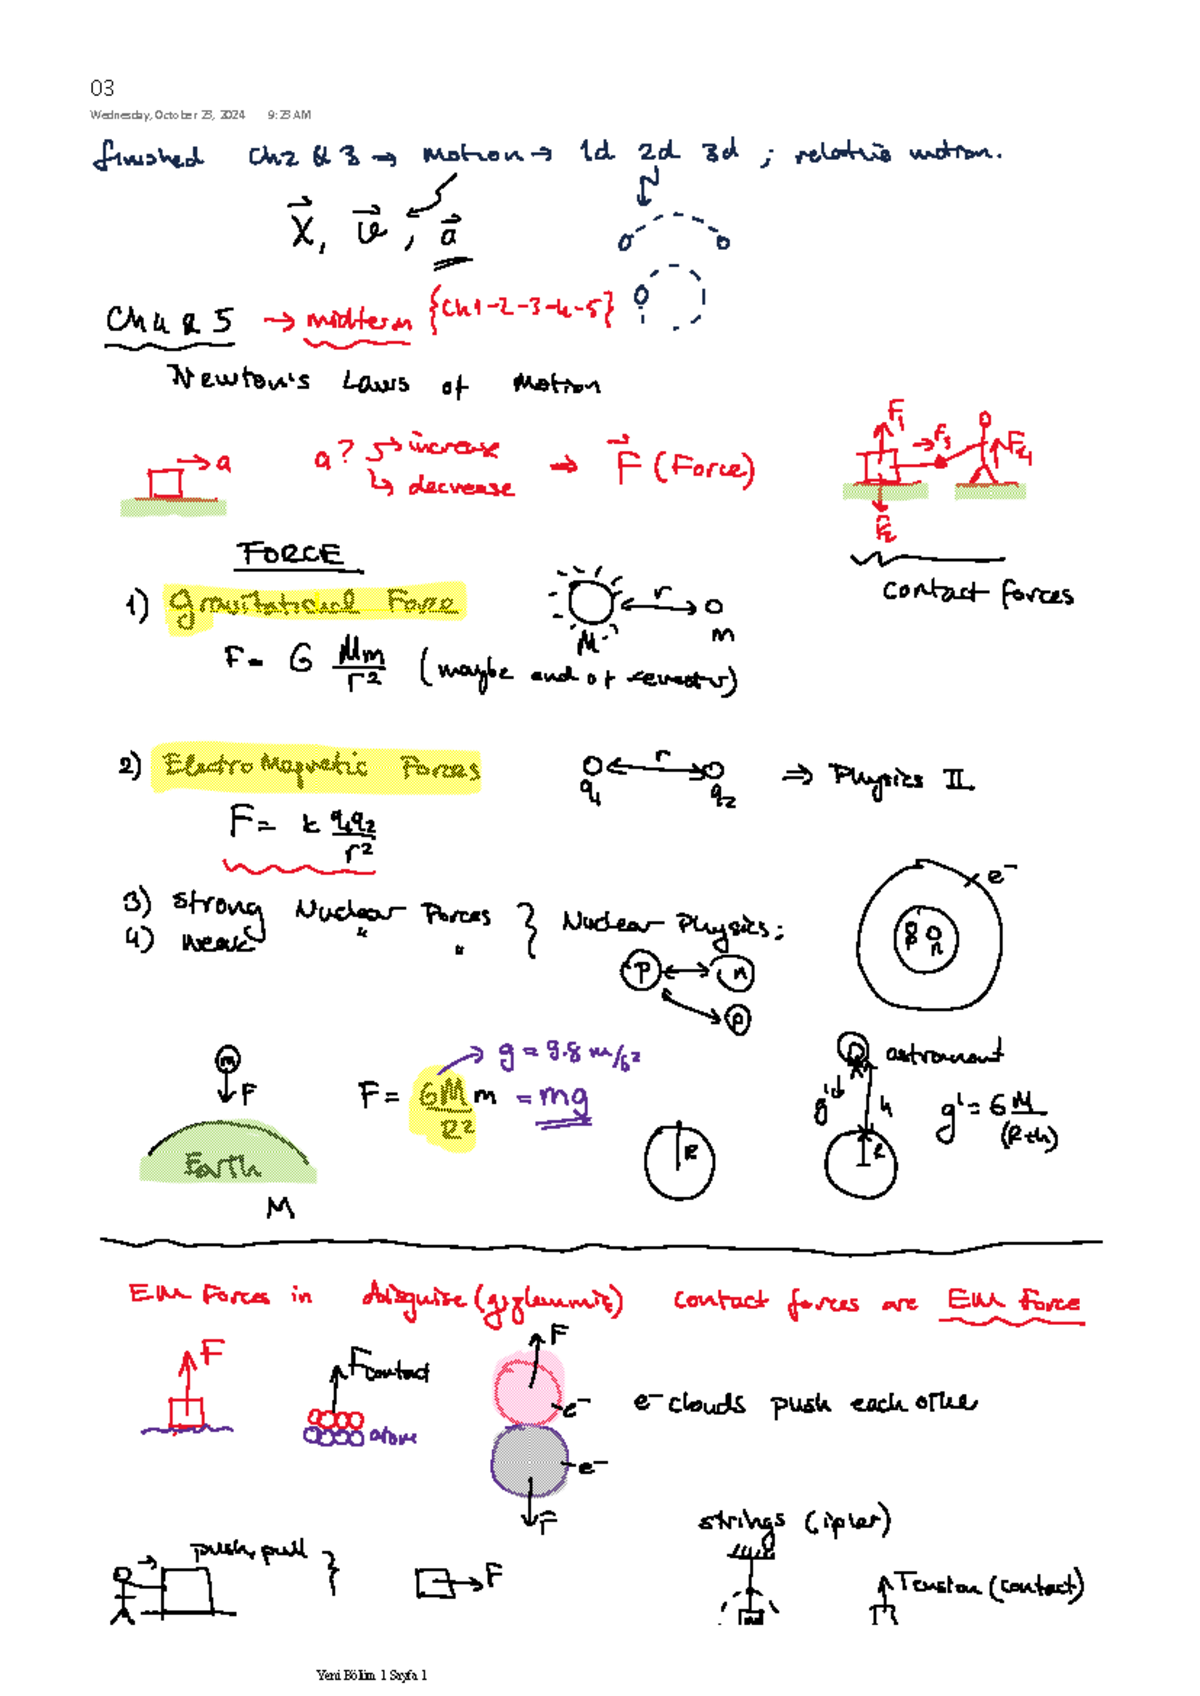 03
Wednesday, October 23, 2024 9:23 AM
finished Ch2 & 3 → Motion → 1d 2d 3d ; relative motion.
x⃗, v⃗, a⃗
Ch 4 & 5 → midterm {Ch1-2-3-4-5}
Newton's Laws of Motion
→ a a? → increase ⇒ F⃗ (Force) F₁ F₃ F₄
↳ decrease F₂
FORCE
contact forces
1) Gravitational Force r
M m
F = G Mm/r² (maybe end of semester)
2) ElectroMagnetic Forces r ⇒ Physics II
q₁ q₂
F = k q₁q₂/r²
e⁻
3) strong Nuclear Forces } Nuclear Physics:
4) weak " "
p n
p n
p
m F g = 9.8 m/s² astronaut
F = GM/R² m = mg g' h g' = G M/(R+h)
Earth R R
M
EM Forces in disguise (gizlenmiş) contact forces are EM force
F F contact F
e⁻ e⁻ clouds push each other
atoms
e⁻
F
strings (ipler)
push, pull } F
Tension (contact)
Yeni Bölüm 1 Sayfa 1